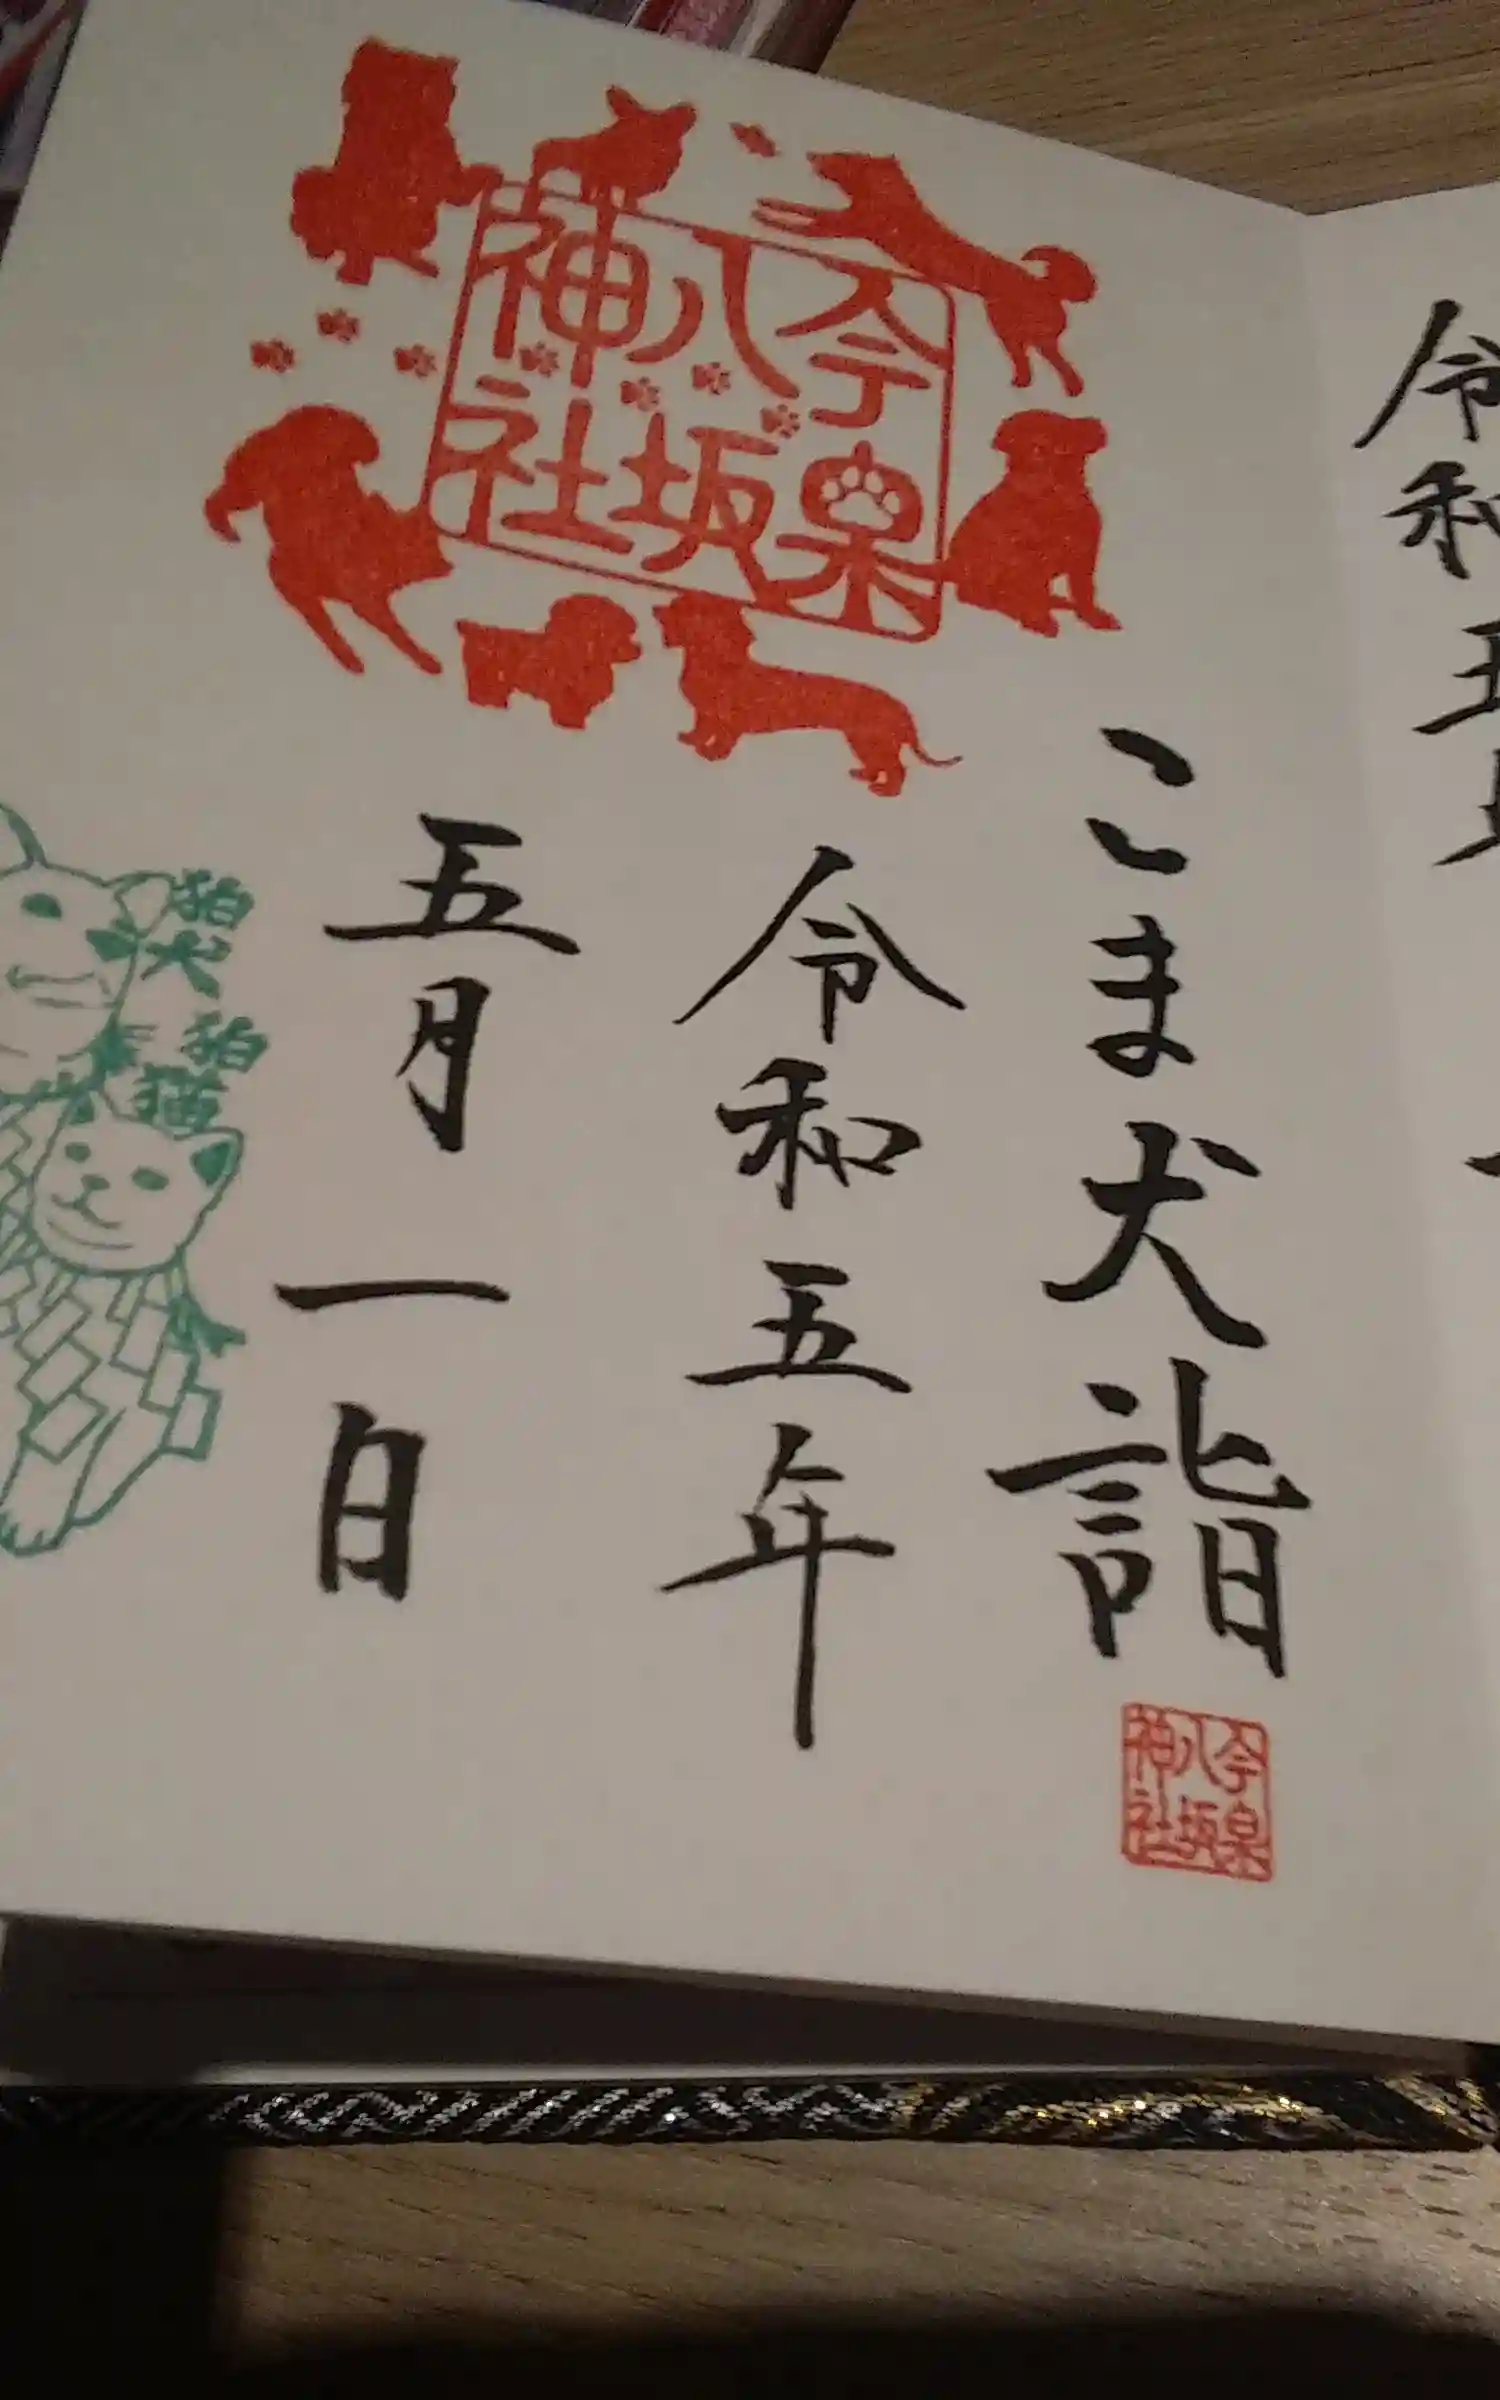 今泉
八坂
神社
こま犬詣
令和五年
五月一日
今泉
八坂
神社
狛犬
狛猫
令和五年